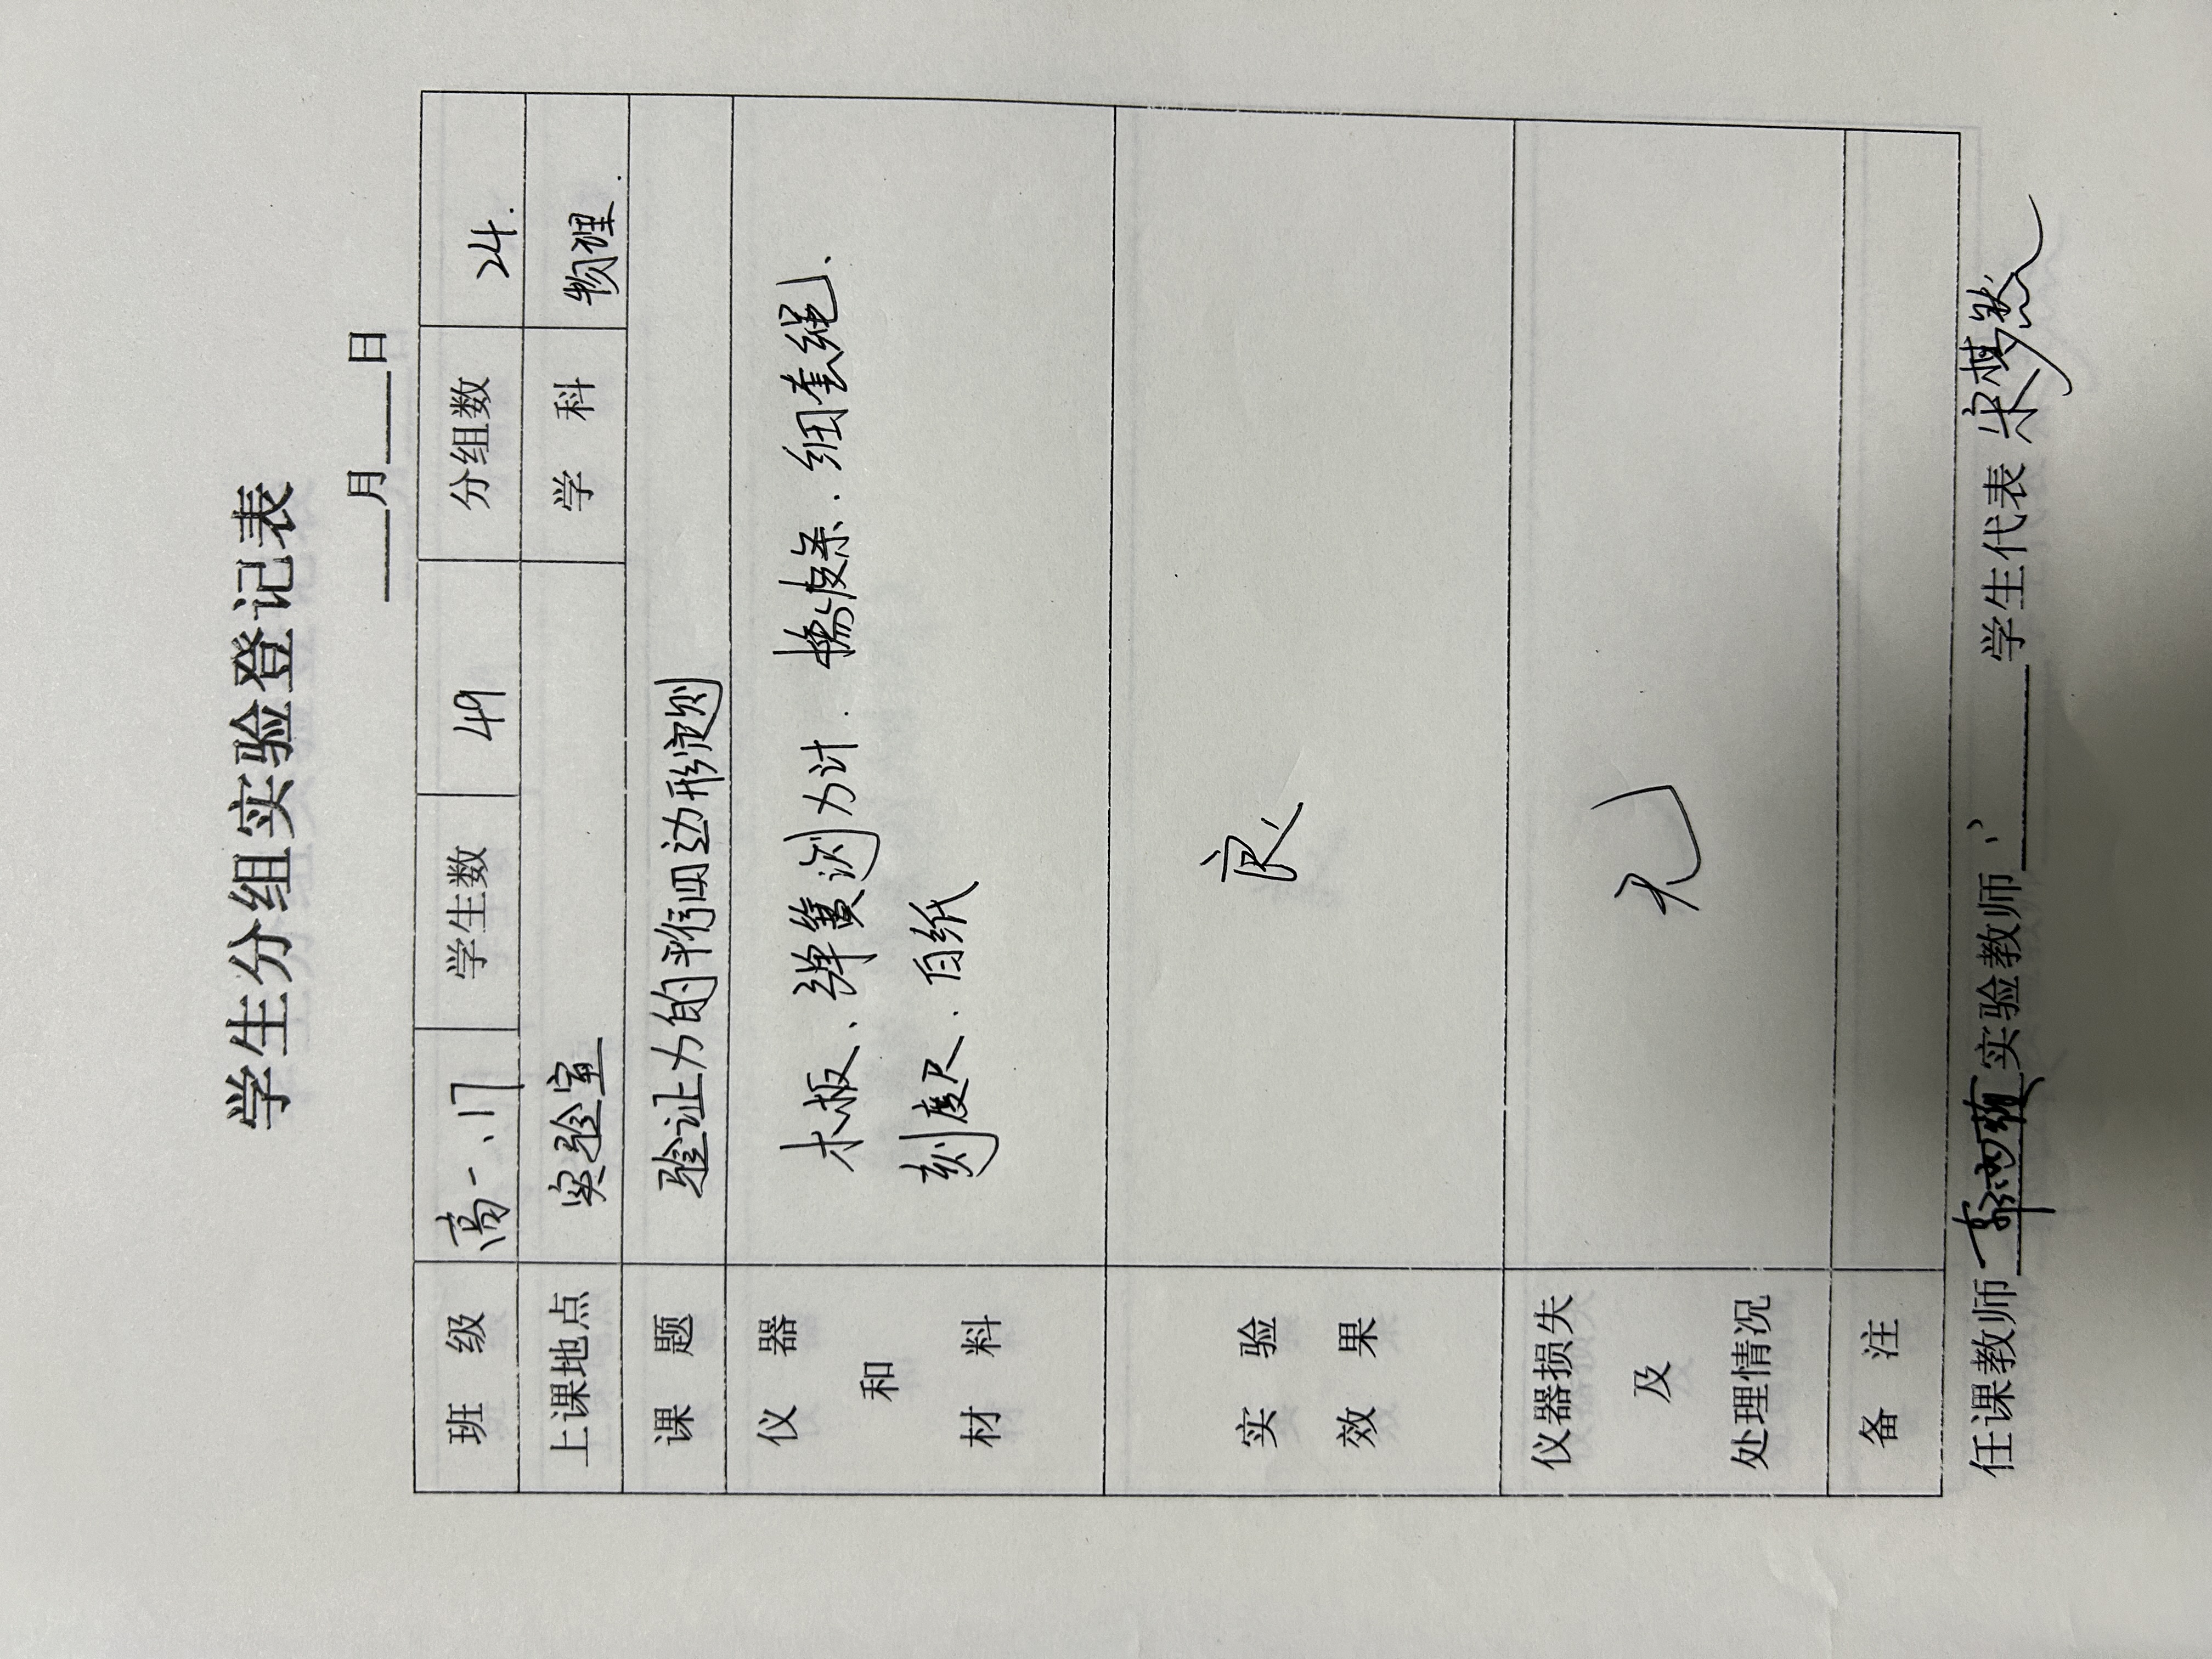 学生分组实验登记表
___月___日
班 级 高一、17 学生数 49 分组数 24.
上课地点 实验室 学 科 物理.
课 题 验证力的平行四边形定则
仪 器 和 材 料 木板、弹簧测力计. 橡皮条. 细套绳.
刻度尺. 白纸
实 验 效 果 良、
仪器损失 及 处理情况 无
备 注
任课教师 实验教师 学生代表